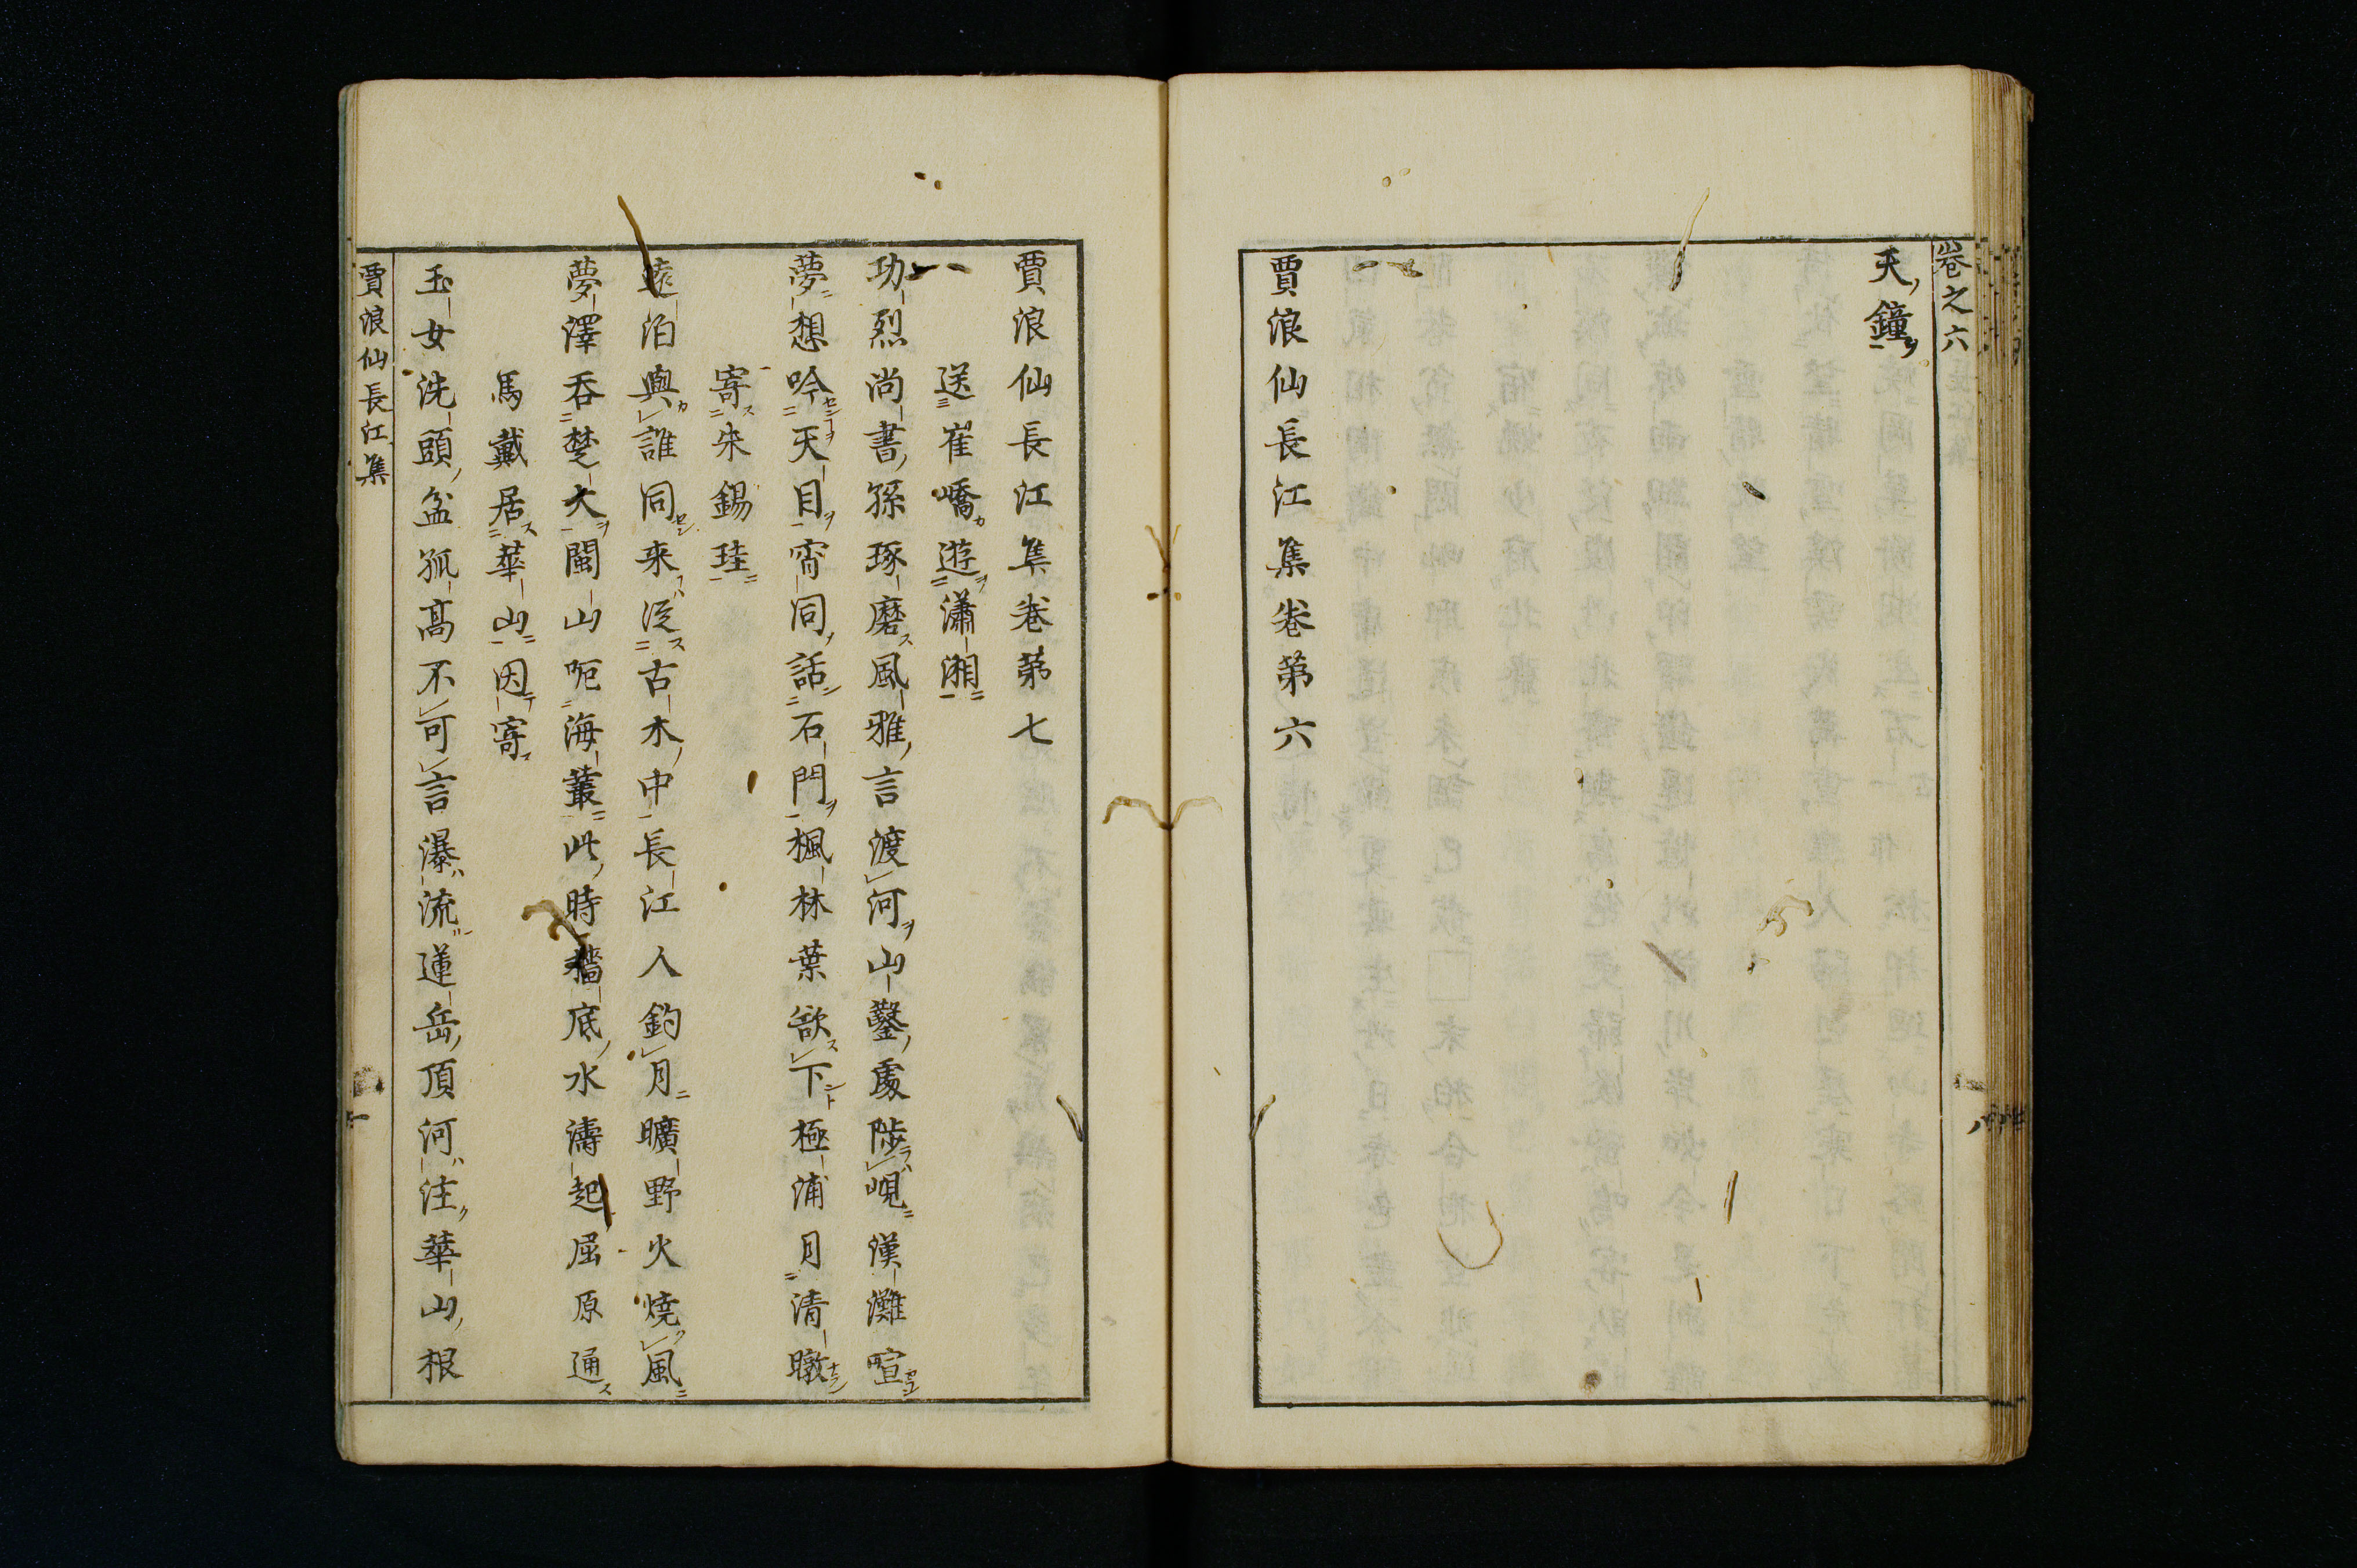 卷之六
天鐘
賈浪仙長江集卷第六
賈浪仙長江集卷第七
送崔嶠遊瀟湘
功烈尚書孫琢磨風雅言渡河山鑿處陟峴漢灘喧
夢想吟天目宵同話石門楓林葉欲下極浦月清暾
寄朱錫珪
遠泊與誰同来從古木中長江人釣月曠野火燒風
夢澤吞楚大閩山呃海叢此時檣底水濤起屈原通
馬戴居華山因寄
玉女洗頭盆孤髙不可言瀑流蓮岳頂河注華山根
賈浪仙長江集